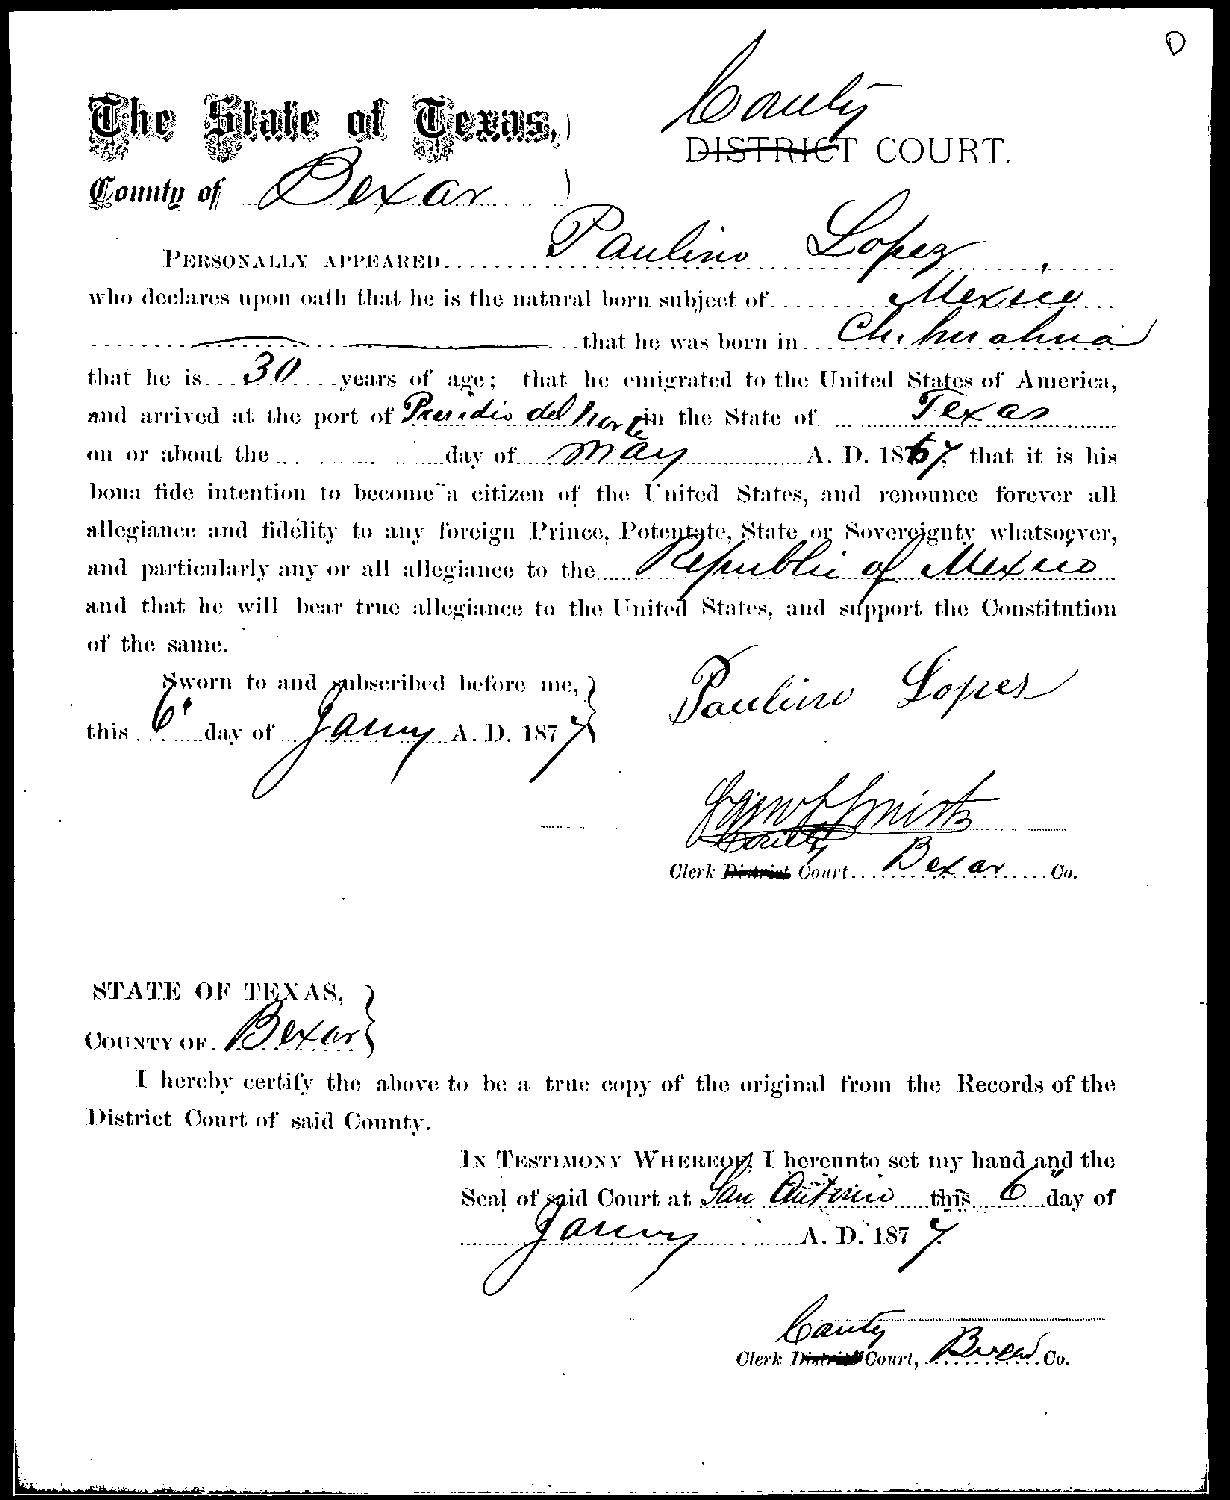 D
The State of Texas,
County of Bexar
County
DISTRICT COURT.
PERSONALLY APPEARED Paulino Lopez,
who declares upon oath that he is the natural born subject of Mexico
that he was born in Chihuahua
that he is 30 years of age; that he emigrated to the United States of America,
and arrived at the port of Presidio del Norte in the State of Texas
on or about the day of May A. D. 1867, that it is his
bona fide intention to become a citizen of the United States, and renounce forever all
allegiance and fidelity to any foreign Prince, Potentate, State or Sovereignty whatsoever,
and particularly any or all allegiance to the Republic of Mexico
and that he will bear true allegiance to the United States, and support the Constitution
of the same.
Sworn to and subscribed before me,
this 6" day of Jany A. D. 1877
Paulino Lopes
Smith
County
Clerk District Court Bexar Co.
STATE OF TEXAS,
COUNTY OF Bexar
I hereby certify the above to be a true copy of the original from the Records of the
District Court of said County.
IN TESTIMONY WHEREOF, I hereunto set my hand and the
Seal of said Court at San Antonio this 6" day of
Jany A. D. 1877.
County
Clerk District Court, Bexar Co.